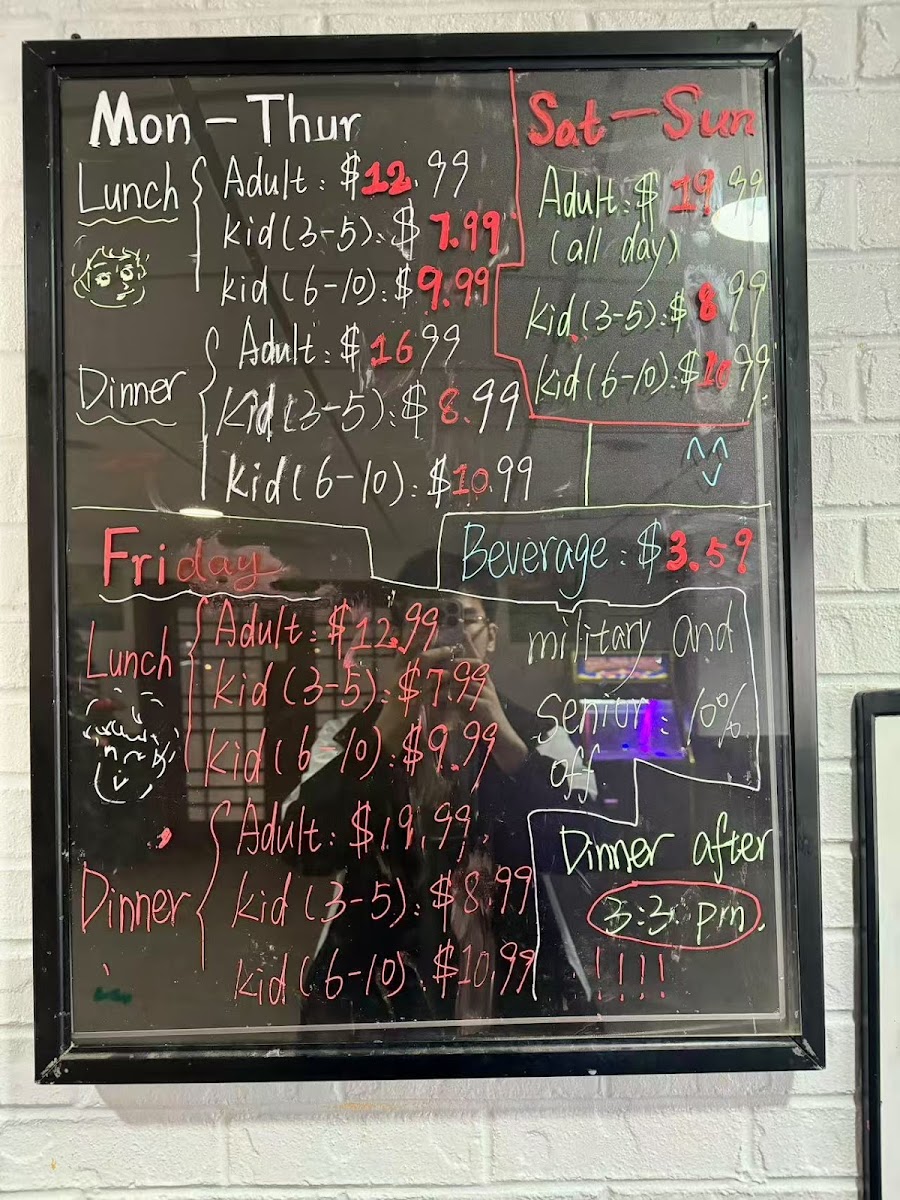 Mon - Thur
Lunch
Adult: $12.99
kid (3-5): $7.99
kid (6-10): $9.99
Dinner
Adult: $16.99
kid (3-5): $8.99
kid (6-10): $10.99
Sat - Sun
Adult: $19.99
(all day)
kid (3-5): $8.99
kid (6-10): $10.99
Friday
Lunch
Adult: $12.99
kid (3-5): $7.99
kid (6-10): $9.99
Dinner
Adult: $19.99
kid (3-5): $8.99
kid (6-10): $10.99
Beverage: $3.59
military and
senior: 10%
off
Dinner after
3:3 pm
!!!!